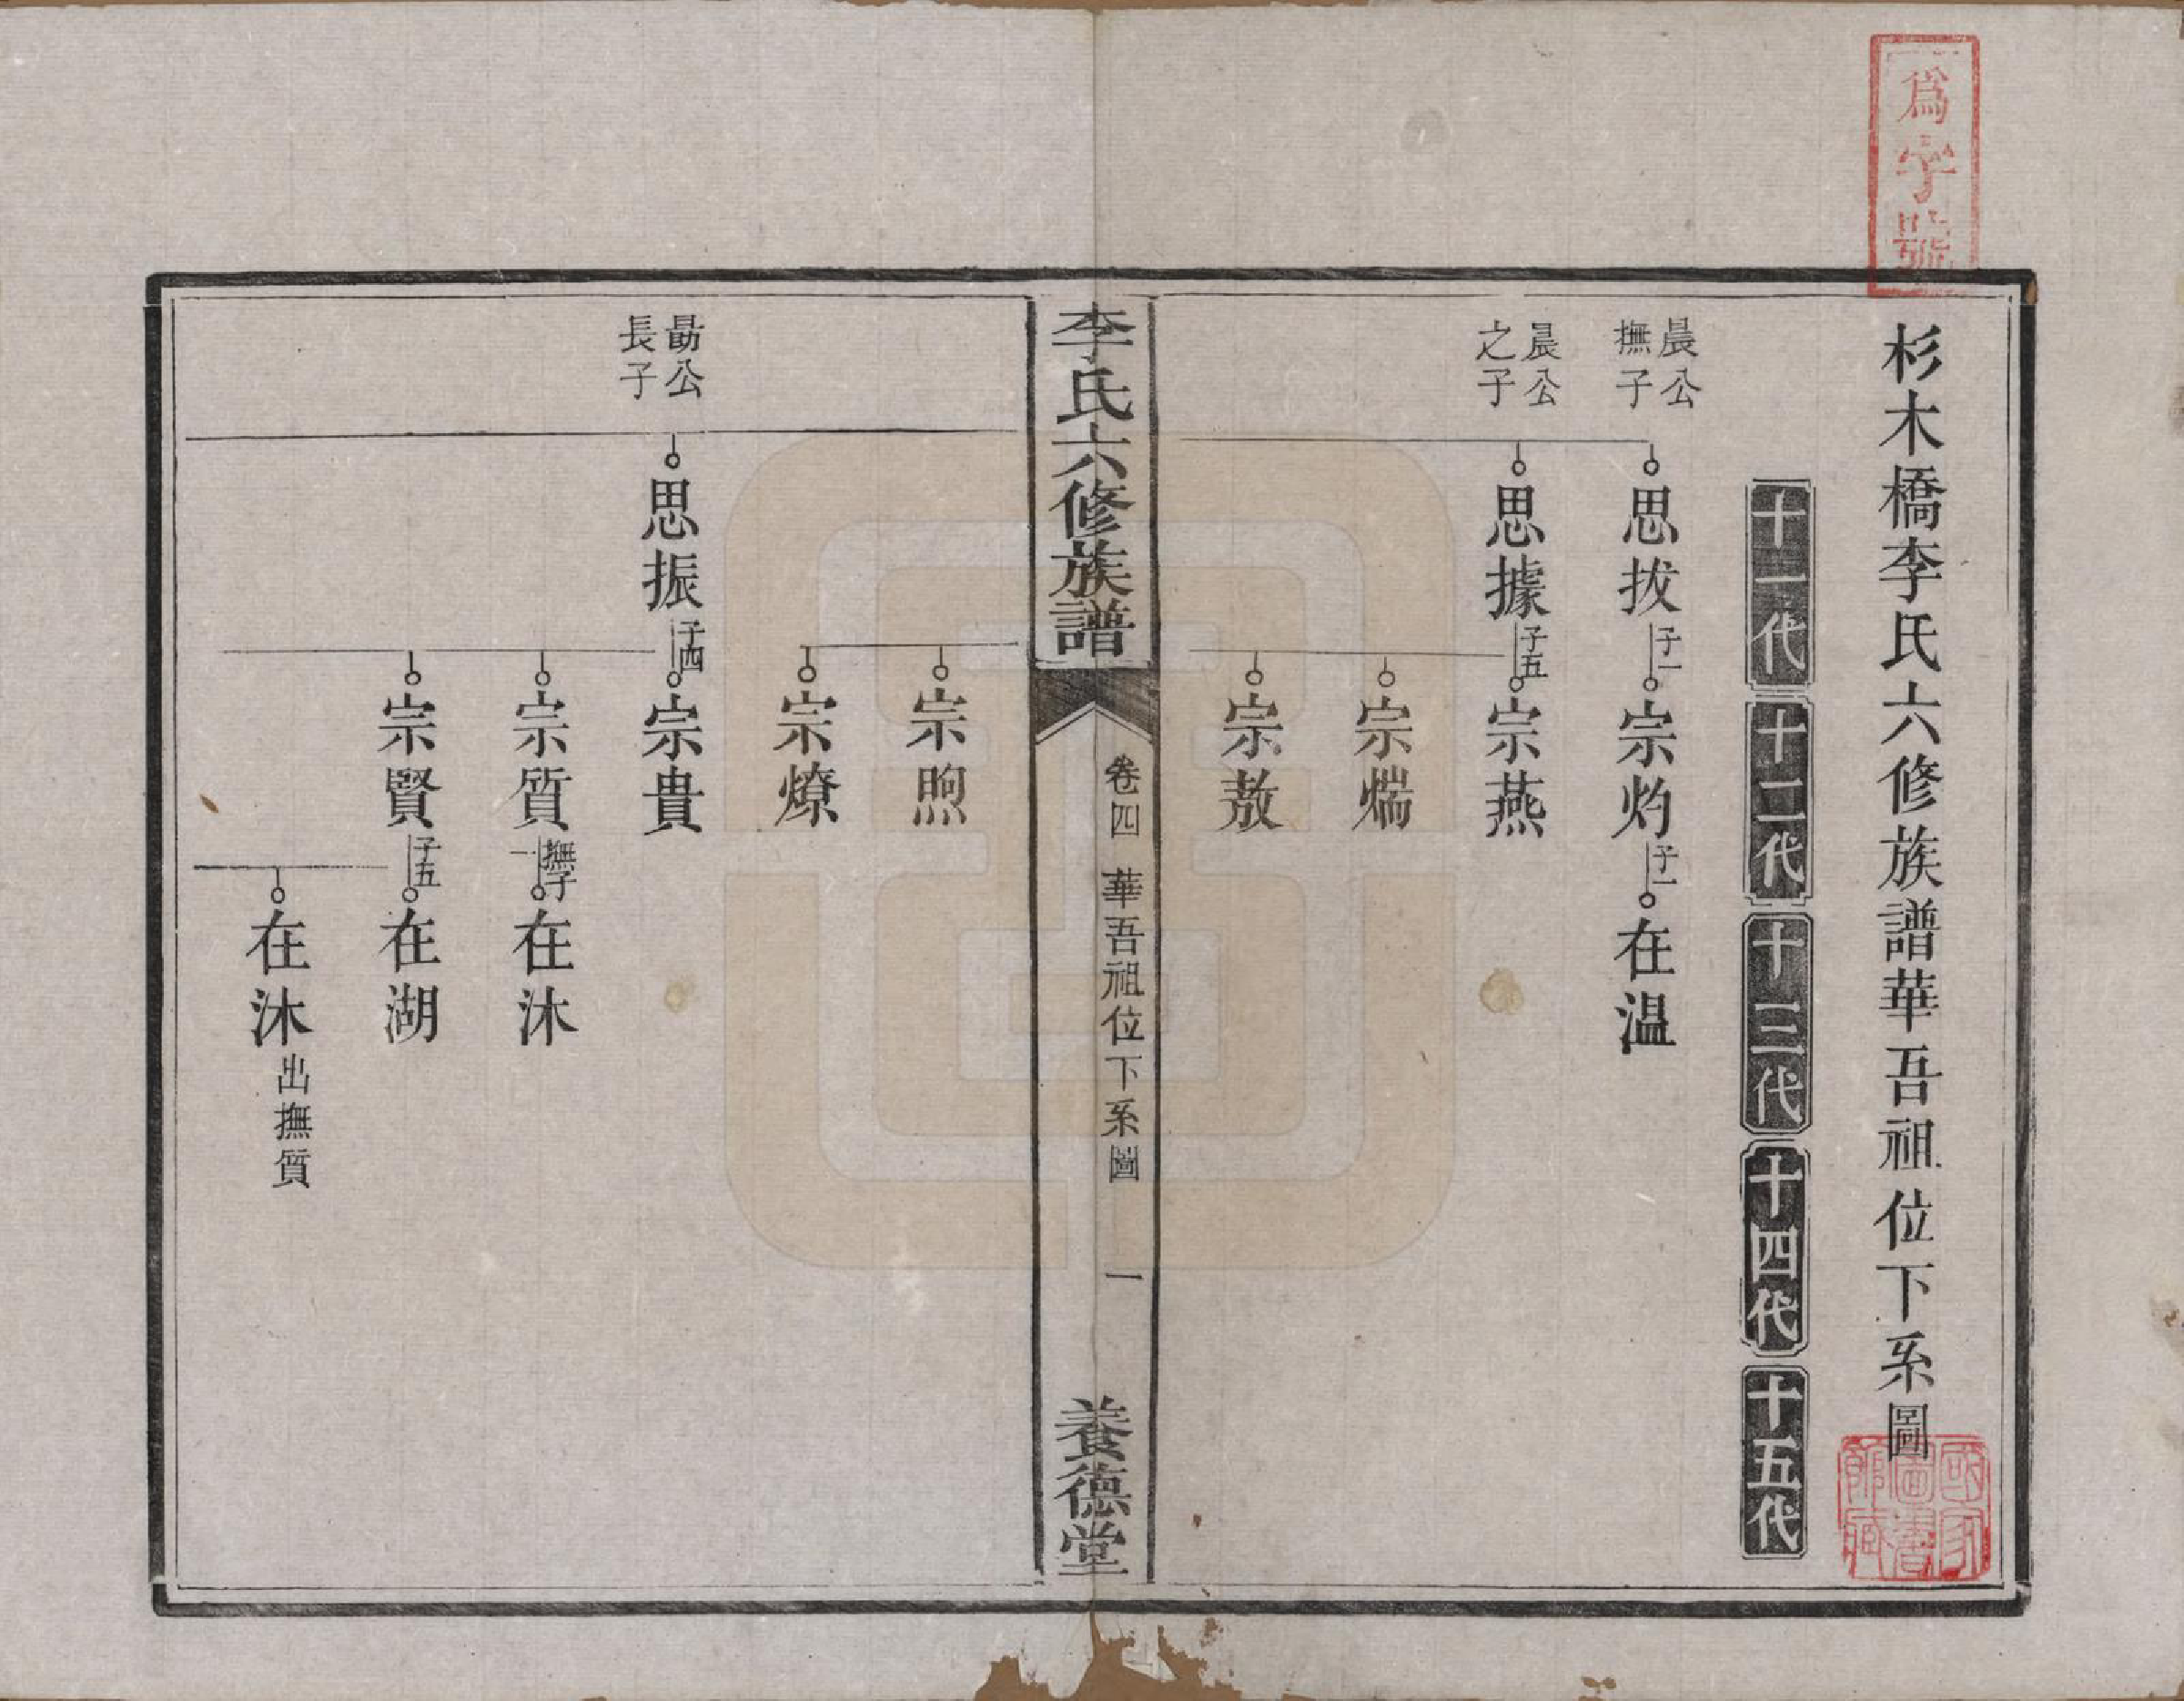 爲字號
杉木橋李氏六修族譜華吾祖位下系圖
國家圖書館藏
十一代 十二代 十三代 十四代 十五代
晨公撫子
思拔 子一 宗灼 子一 在温
晨公之子
思據 子五 宗燕
宗煓
宗敖
李氏六修族譜 卷四 華吾祖位下系圖 一 養德堂
宗煦
宗燎
勗公長子
思振 子四 宗貴
宗質 撫子一 在沐
宗賢 子五 在湖
在沐 出撫質